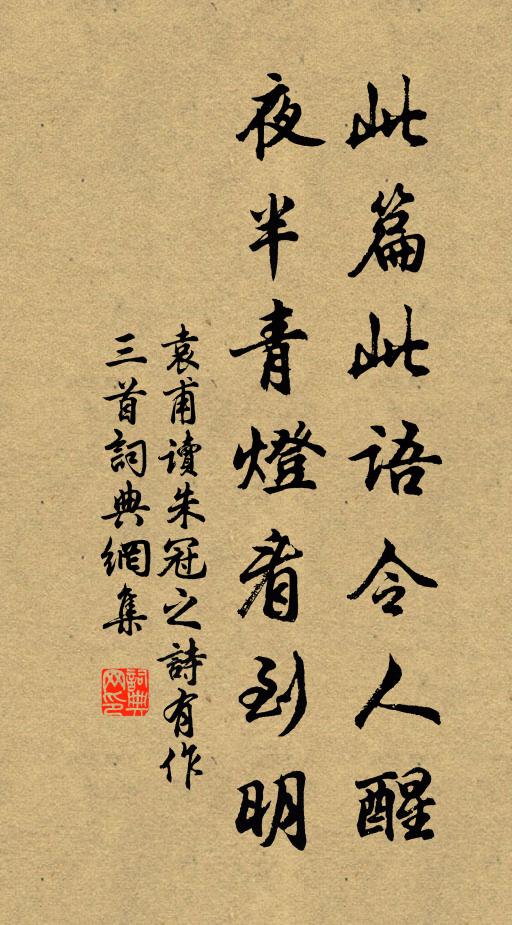 此篇此语令人醒
夜半青燈看到明
袁甫讀朱冠之詩有作
三首詞典網集
詞典
网印